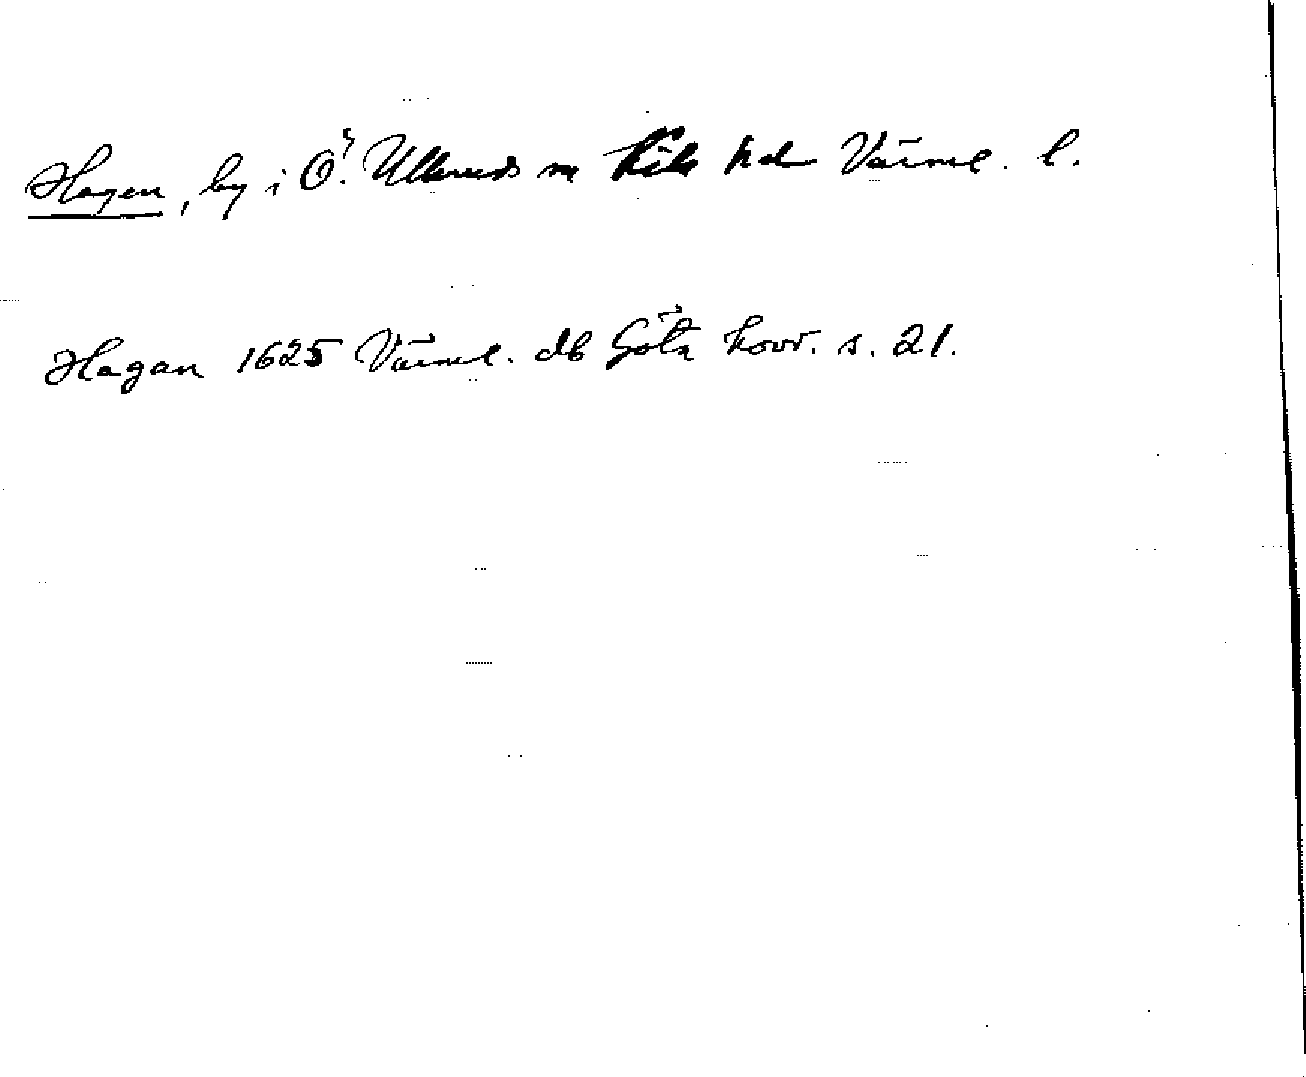 Hagen, by i Ö. Ulleruds sn Kils hd Värml. l.
Hagan 1625 Värml. db Göta hovr. s. 21.